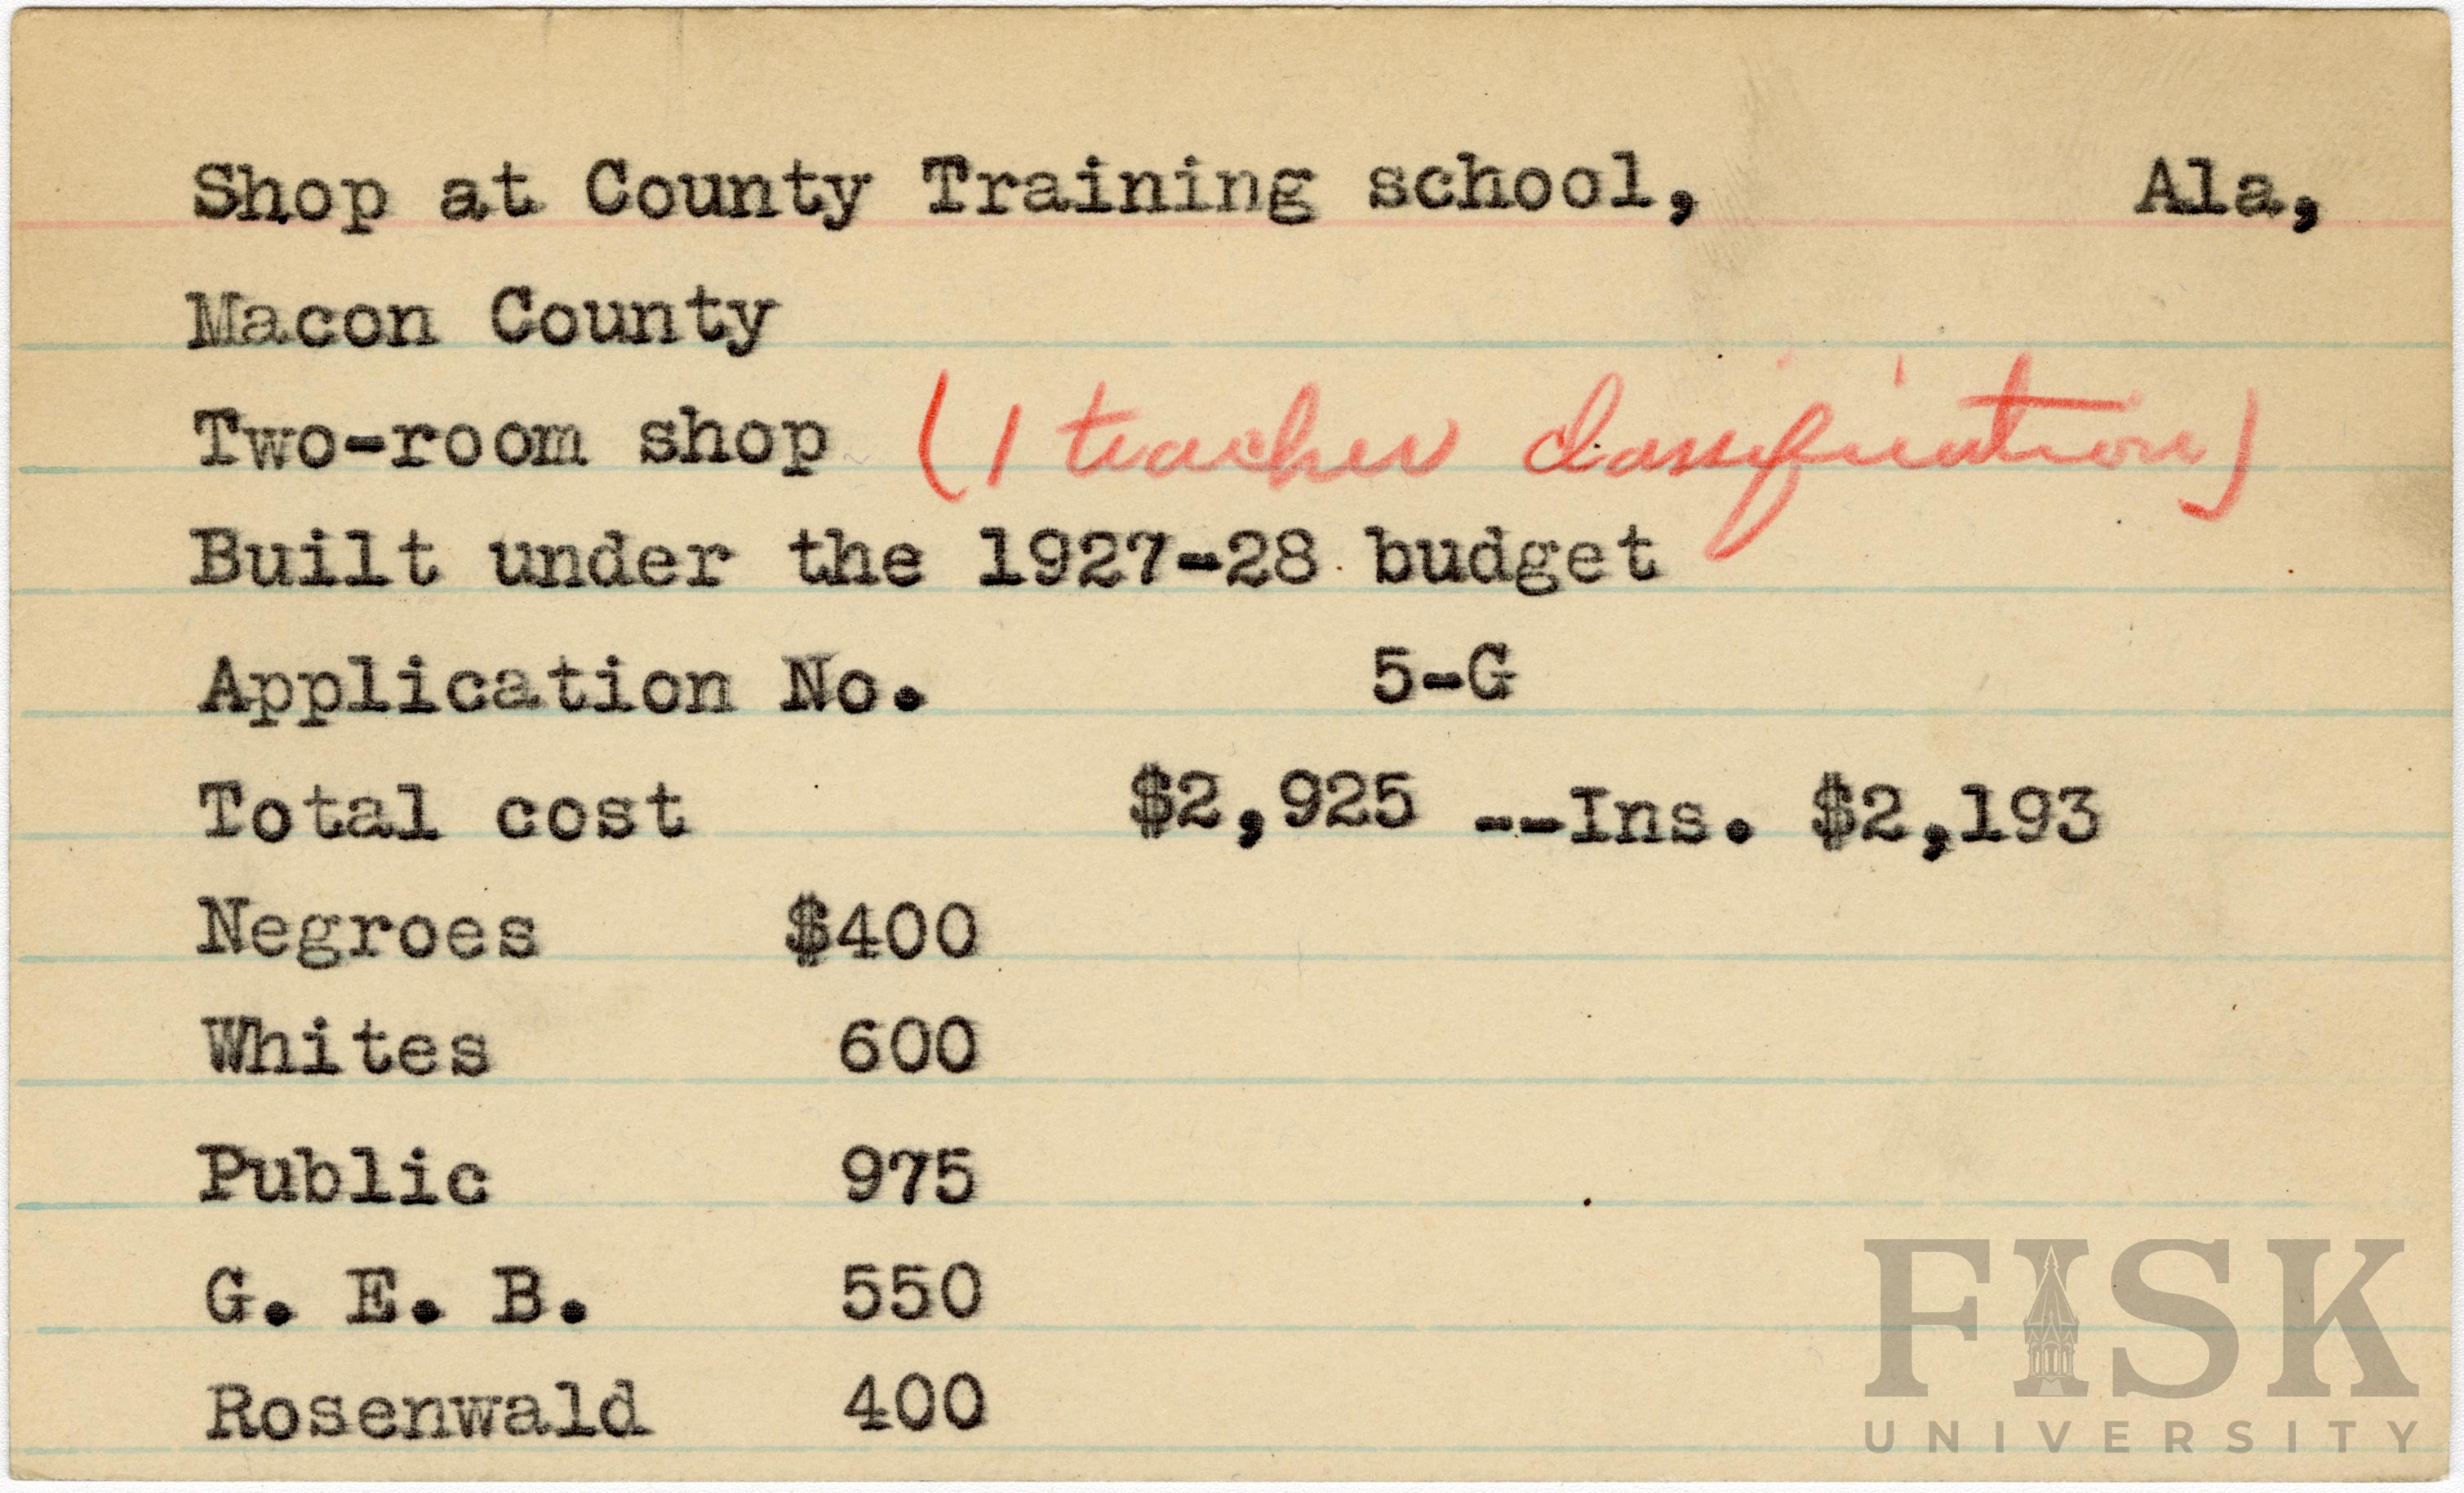 Shop at County Training school, Ala,
Macon County
Two-room shop (1 teacher classification)
Built under the 1927-28 budget
Application No. 5-G
Total cost $2,925 --Ins. $2,193
Negroes $400
Whites 600
Public 975
G. E. B. 550
Rosenwald 400
FISK
UNIVERSITY